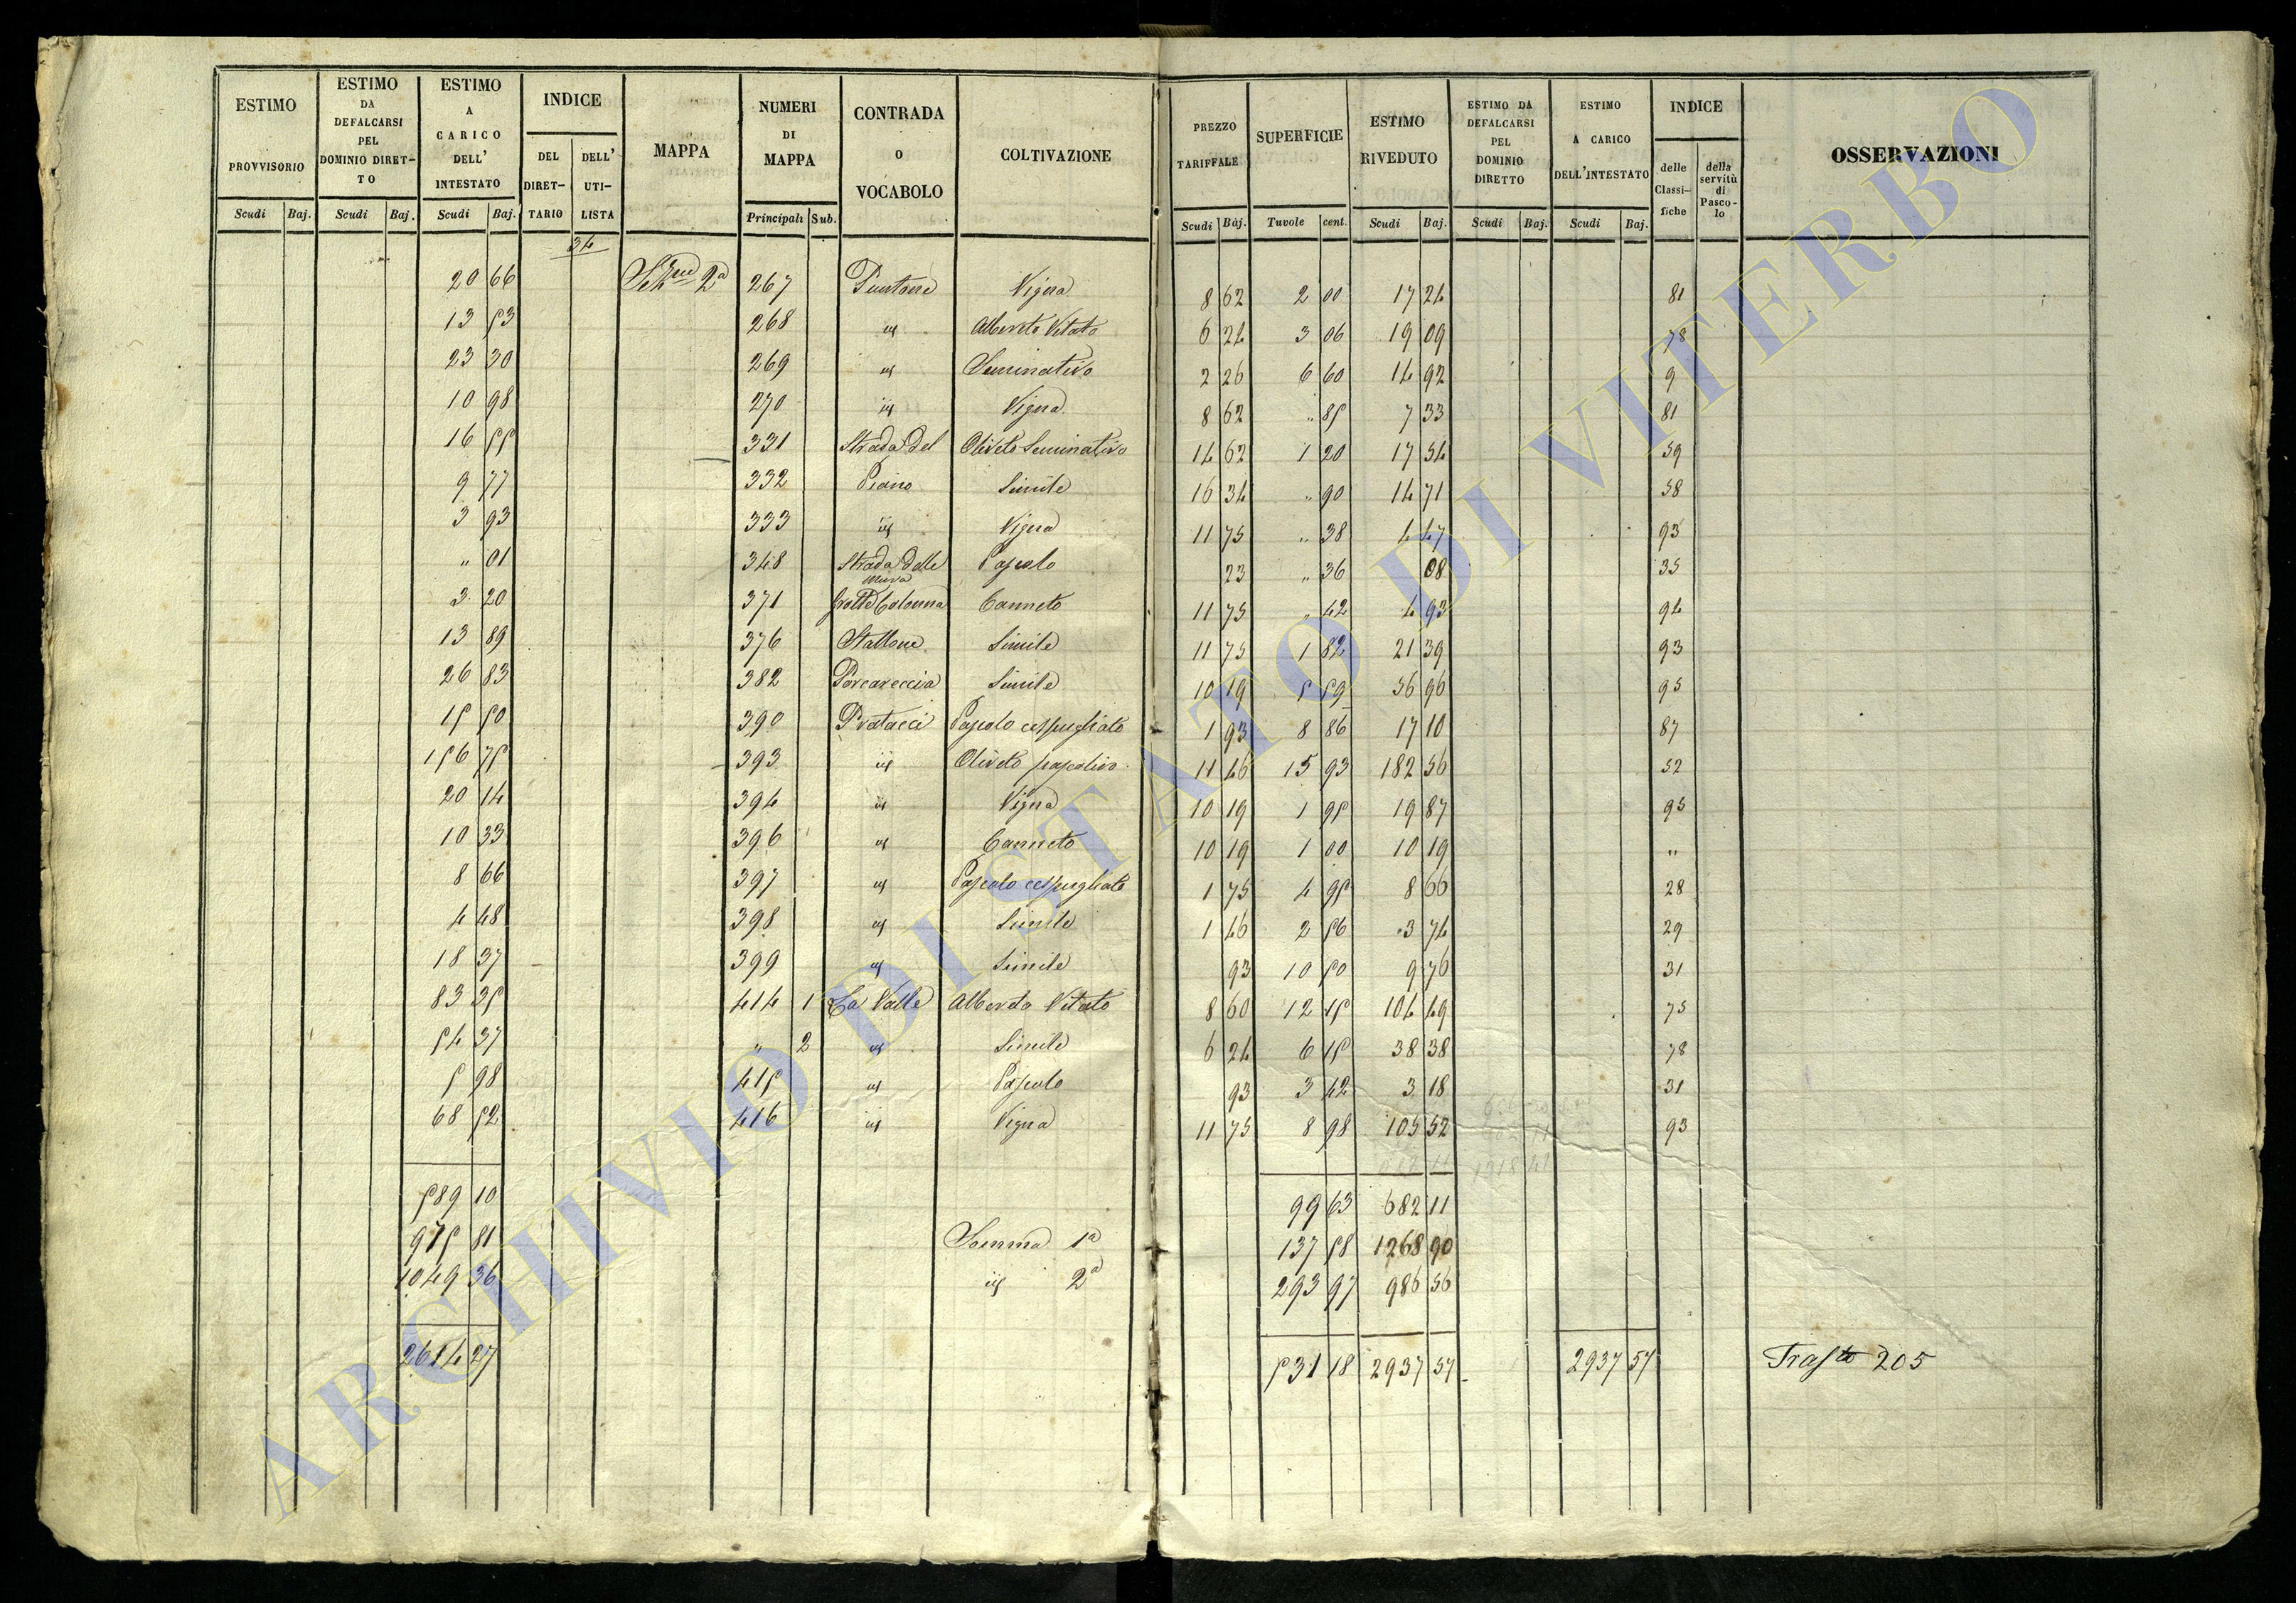 ESTIMO PROVVISORIO Scudi Baj. | ESTIMO DA DEFALCARSI PEL DOMINIO DIRET-TO Scudi Baj. | ESTIMO A CARICO DELL' INTESTATO Scudi Baj. | INDICE DEL DIRET-TARIO DELL' UTI-LISTA | MAPPA | NUMERI DI MAPPA Principali Sub. | CONTRADA O VOCABOLO | COLTIVAZIONE | PREZZO TARIFFALE Scudi Baj. | SUPERFICIE Tavole cent. | ESTIMO RIVEDUTO Scudi Baj. | ESTIMO DA DEFALCARSI PEL DOMINIO DIRETTO Scudi Baj. | ESTIMO A CARICO DELL'INTESTATO Scudi Baj. | INDICE delle Classi-fiche della servitù di Pasco-lo | OSSERVAZIONI
34
20 66 2ª 267 Puntone Vigna 8 62 2 00 17 24 81
13 53 268 id Albereto Vitato 6 24 3 06 19 09 78
23 30 269 id Seminativo 2 26 6 60 14 92 9
10 98 270 id Vigna 8 62 " 85 7 33 81
16 55 331 Strada del Oliveto Seminativo 14 62 1 20 17 54 59
9 77 332 Piano Simile 16 34 " 90 14 71 58
3 93 333 id Vigna 11 75 " 38 4 47 93
" 01 348 Strada delle Mura Pascolo 23 " 36 08 35
3 20 371 Grotte Colonna Canneto 11 75 " 42 4 93 94
13 89 376 Stallone Simile 11 75 1 82 21 39 93
26 83 382 Porcareccia Simile 10 19 5 59 56 96 95
15 50 390 Pratacci Pascolo cespugliato 1 93 8 86 17 10 87
156 75 393 id Oliveto pascolivo 11 46 15 93 182 56 52
20 14 394 id Vigna 10 19 1 95 19 87 95
10 33 396 id Canneto 10 19 1 00 10 19 "
8 66 397 id Pascolo cespugliato 1 75 4 95 8 66 28
4 48 398 id Simile 1 46 2 56 3 74 29
18 37 399 id Simile 93 10 50 9 76 31
83 35 414 1 La Valle Alberato Vitato 8 60 12 15 104 49 75
54 37 " 2 id Simile 6 24 6 15 38 38 78
5 98 415 id Pascolo 93 3 42 3 18 31
68 52 416 id Vigna 11 75 8 98 105 52 93
589 10 99 63 682 11
975 81 Somma 1ª 137 58 1268 90
1049 36 id 2ª 293 97 986 56
2614 27 531 18 2937 57 2937 57 Trasto 205
ARCHIVIO DI STATO DI VITERBO